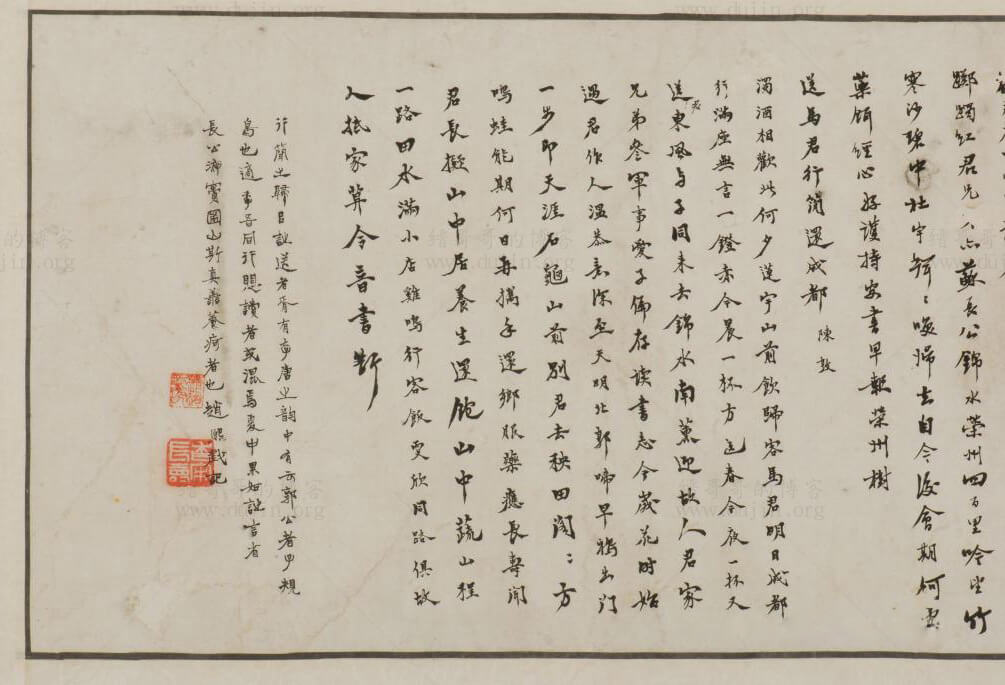 躑躅紅君兄人亦蘇長公錦水榮州四百里吟坐竹
寒沙碧中杜宇聲聲喚歸去自今後會期何
藥餌經心好護持安書早報榮州樹
送馬君行簡還成都 陳敦
濁酒相歡此何夕蓮宇山前飲歸客馬君明日成都
行滿座無言一鐙赤今晨一杯方送春今夜一杯又
送君東風與子同來去錦水南薰迎故人君家
兄弟參軍事愛子偏存讀書志今歲花時始
過君作人溫恭意深至天明北郭啼早鴉出門
一步即天涯石龜山前別君去秧田閣閣方
鳴蛙能期何日再攜手還鄉服藥應長專聞
君長擬山中居養生還飽山中蔬山程
一路田水滿小店雞鳴行客飯更欣同路俱故
人抵家算今音書斷
行簡之歸日
送者胥有
唐之韻中有云郭公者
規
鳥也適
吾同行想讀者或混焉
申果如
言省
長公
寶國山斯真
養疴者也趙熙
記